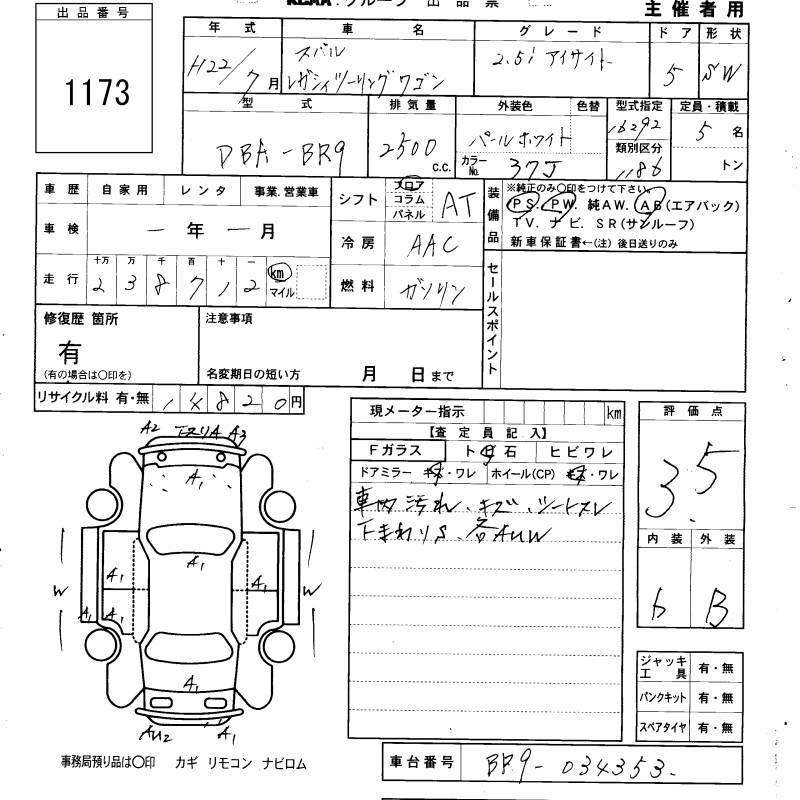 KCAA グループ 出品票
主催者用
出品番号
1173
年式 車名 グレード ドア 形状
H22/7月 スバル レガシィツーリングワゴン 2.5i アイサイト 5 SW
型式 排気量 外装色 色替 型式指定 定員・積載
DBA-BR9 2500 c.c. パールホワイト カラーNo. 37J 16292 類別区分 1186 5名 トン
車歴 自家用 レンタ 事業.営業車
車検 ー年ー月
走行 十万 万 千 百 十 一
238712 km マイル
シフト フロア コラム パネル AT
冷房 AAC
燃料 ガソリン
装備品 ※純正のみ○印をつけて下さい。
PS. PW. 純AW. AB(エアバック)
TV. ナビ. SR(サンルーフ)
新車保証書←(注)後日送りのみ
セールスポイント
修復歴 箇所
有
(有の場合は○印を)
注意事項
名変期日の短い方 月 日まで
リサイクル料 有・無 14820円
現メーター指示 km
【査定員記入】
Fガラス ト石 ヒビワレ
ドアミラー キズ・ワレ ホイール(CP) キズ・ワレ
車内汚れ、キズ、シートスレ
下まわりS、各AUW
評価点
3.5
内装 外装
b B
ジャッキ工具 有・無
パンクキット 有・無
スペアタイヤ 有・無
A2 A3
A1
A1
A1 A1
W W
A1 A1
A1
AU2 A1
事務局預り品は○印 カギ リモコン ナビロム
車台番号 BR9-034353